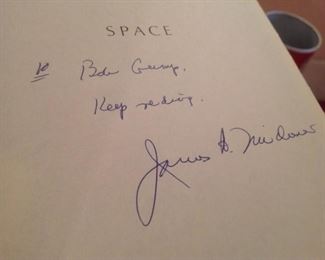 SPACE
to Bob
Keep reading.
James A. Michener